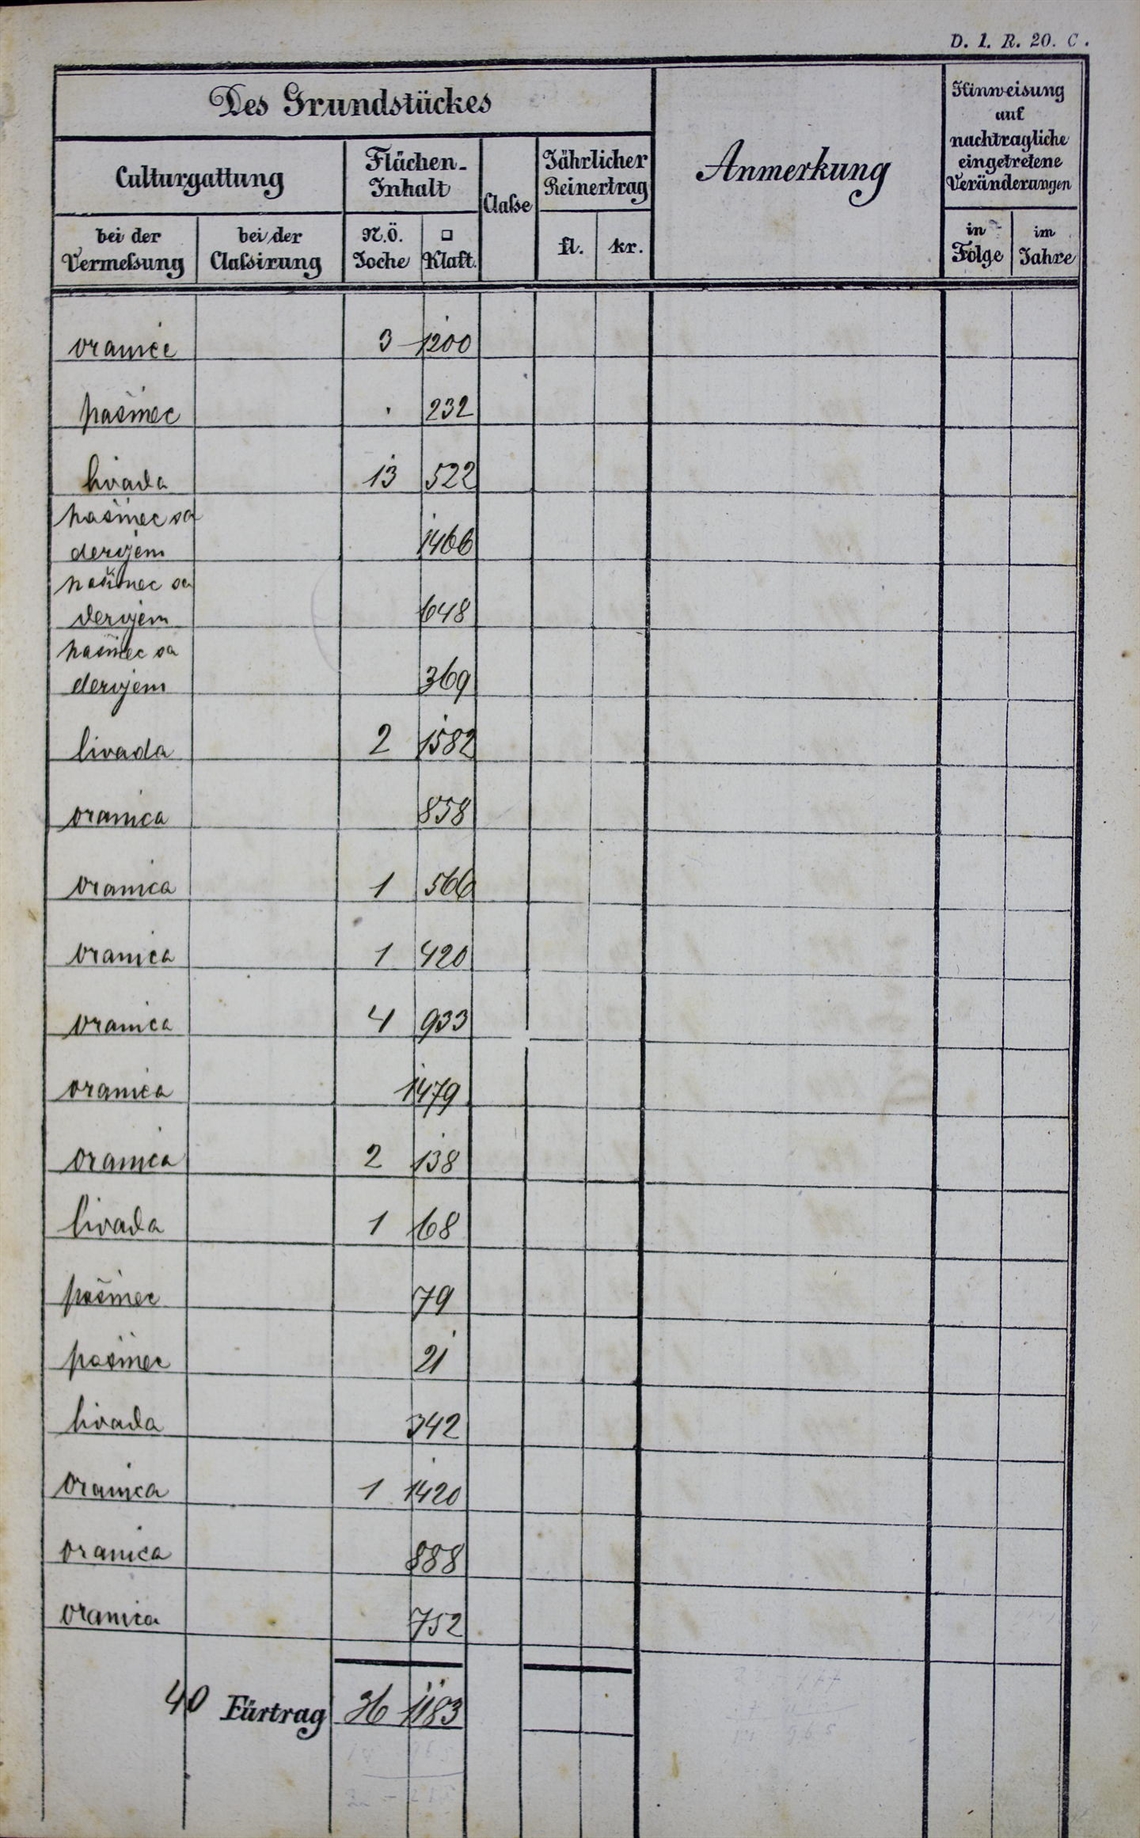 D. 1. R. 20. C.
Des Grundstückes
Anmerkung
Hinweisung
auf
nachtragliche
eingetretene
Veränderungen
Culturgattung
Flächen-
Inhalt
Claße
Jährlicher
Reinertrag
bei der
Vermeßung
bei der
Claßirung
N.Ö.
Joche
□
Klaft.
fl.
kr.
in
Folge
im
Jahre
oranice 3 1200
pašinec . 232
livada 13 522
pašinec sa
dervjem 1466
pašinec sa
dervjem 648
pašinec sa
dervjem 369
livada 2 1582
oranica 858
oranica 1 566
oranica 1 420
oranica 4 933
oranica 1479
oranica 2 138
livada 1 68
pašinec 79
pašinec 21
livada 342
oranica 1 1420
oranica 888
oranica 752
40 Fürtrag 36 1183